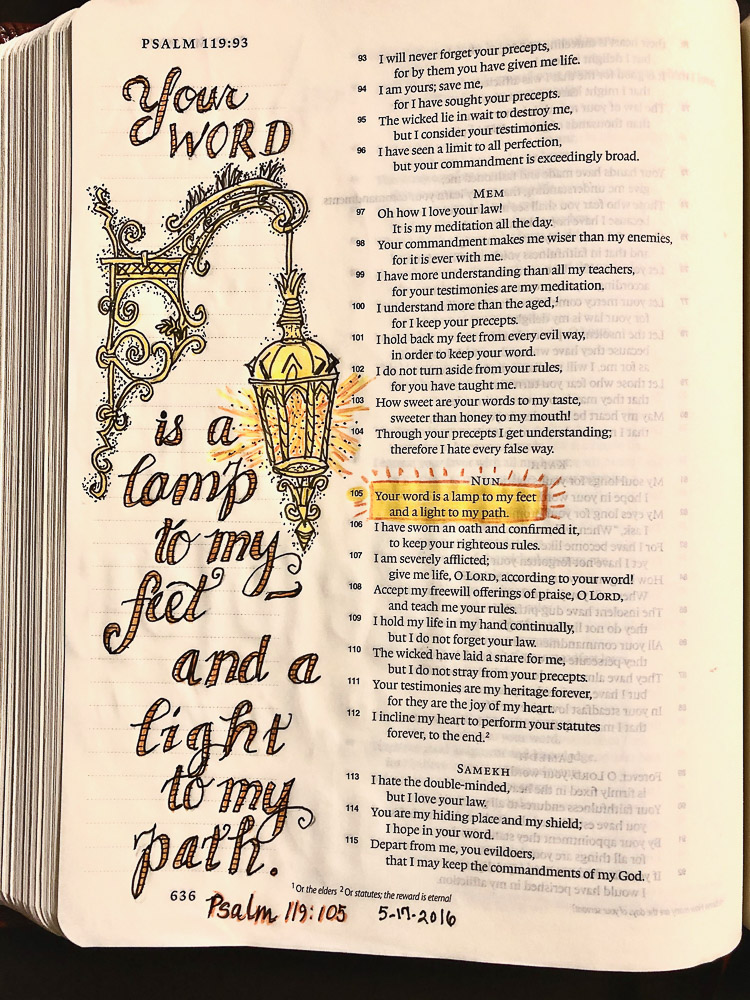 PSALM 119:93
Your
WORD
is a
lamp
to my
feet
and a
light
to my
path.
93 I will never forget your precepts,
for by them you have given me life.
94 I am yours; save me,
for I have sought your precepts.
95 The wicked lie in wait to destroy me,
but I consider your testimonies.
96 I have seen a limit to all perfection,
but your commandment is exceedingly broad.
MEM
97 Oh how I love your law!
It is my meditation all the day.
98 Your commandment makes me wiser than my enemies,
for it is ever with me.
99 I have more understanding than all my teachers,
for your testimonies are my meditation.
100 I understand more than the aged,1
for I keep your precepts.
101 I hold back my feet from every evil way,
in order to keep your word.
102 I do not turn aside from your rules,
for you have taught me.
103 How sweet are your words to my taste,
sweeter than honey to my mouth!
104 Through your precepts I get understanding;
therefore I hate every false way.
NUN
105 Your word is a lamp to my feet
and a light to my path.
106 I have sworn an oath and confirmed it,
to keep your righteous rules.
107 I am severely afflicted;
give me life, O LORD, according to your word!
108 Accept my freewill offerings of praise, O LORD,
and teach me your rules.
109 I hold my life in my hand continually,
but I do not forget your law.
110 The wicked have laid a snare for me,
but I do not stray from your precepts.
111 Your testimonies are my heritage forever,
for they are the joy of my heart.
112 I incline my heart to perform your statutes
forever, to the end.2
SAMEKH
113 I hate the double-minded,
but I love your law.
114 You are my hiding place and my shield;
I hope in your word.
115 Depart from me, you evildoers,
that I may keep the commandments of my God.
1 Or the elders 2 Or statutes; the reward is eternal
636
Psalm 119:105 5-17-2016